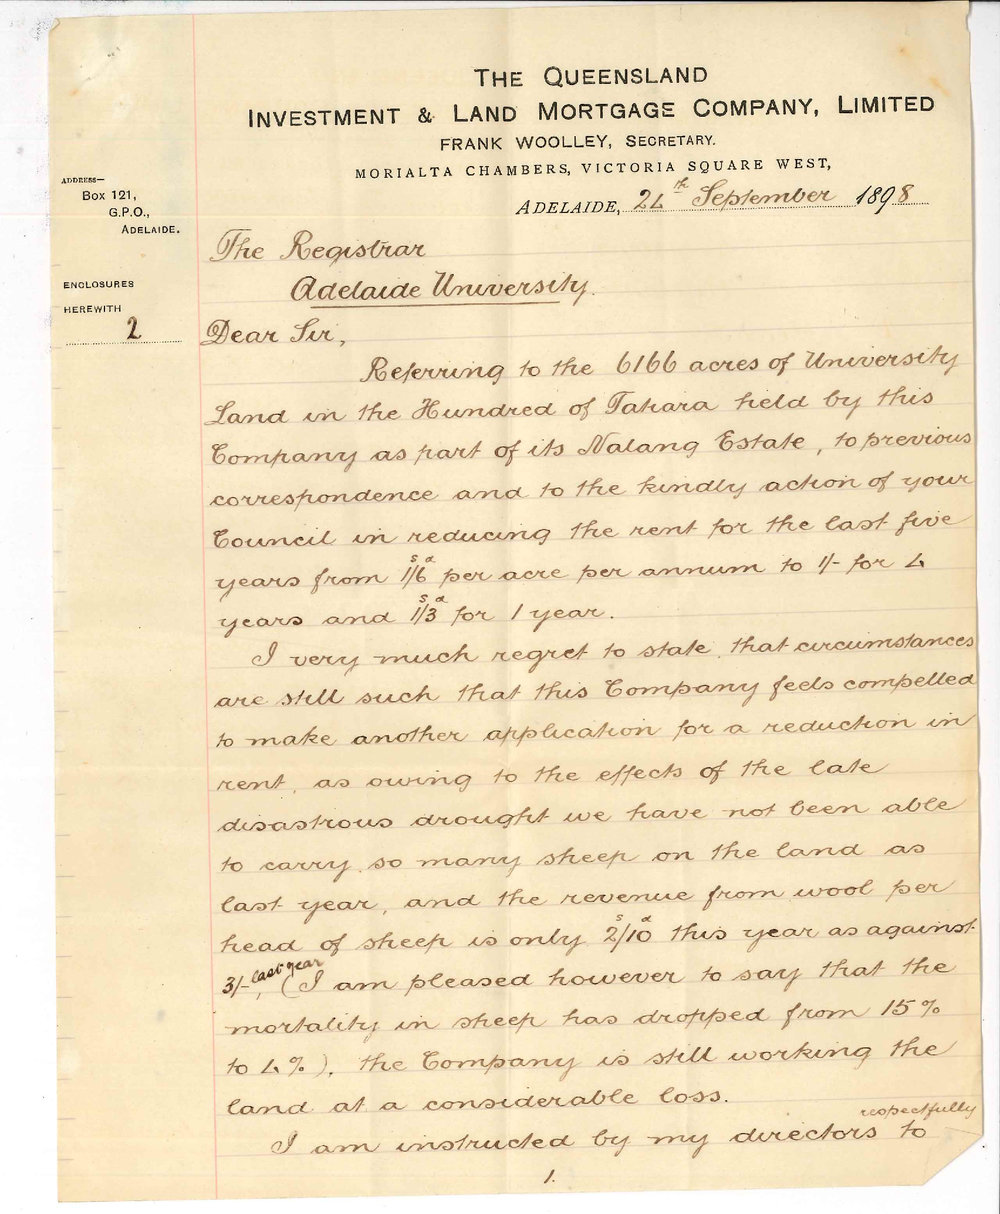 THE QUEENSLAND
INVESTMENT & LAND MORTGAGE COMPANY, LIMITED
FRANK WOOLLEY, SECRETARY.
MORIALTA CHAMBERS, VICTORIA SQUARE WEST,
ADELAIDE, 24th September 1898
ADDRESS—
Box 121,
G.P.O.,
ADELAIDE.
ENCLOSURES
HEREWITH
2
The Registrar
Adelaide University.
Dear Sir,
Referring to the 6166 acres of University
Land in the Hundred of Tatiara held by this
Company as part of its Nalang Estate, to previous
correspondence and to the kindly action of your
Council in reducing the rent for the last five
years from 1s/6d per acre per annum to 1/- for 4
years and 1s/3d for 1 year.
I very much regret to state that circumstances
are still such that this Company feels compelled
to make another application for a reduction in
rent, as owing to the effects of the late
disastrous drought we have not been able
to carry so many sheep on the land as
last year, and the revenue from wool per
head of sheep is only 2s/10d this year as against
3/- last year, (I am pleased however to say that the
mortality in sheep has dropped from 15%
to 4%), the Company is still working the
land at a considerable loss.
I am instructed by my directors to respectfully
1.